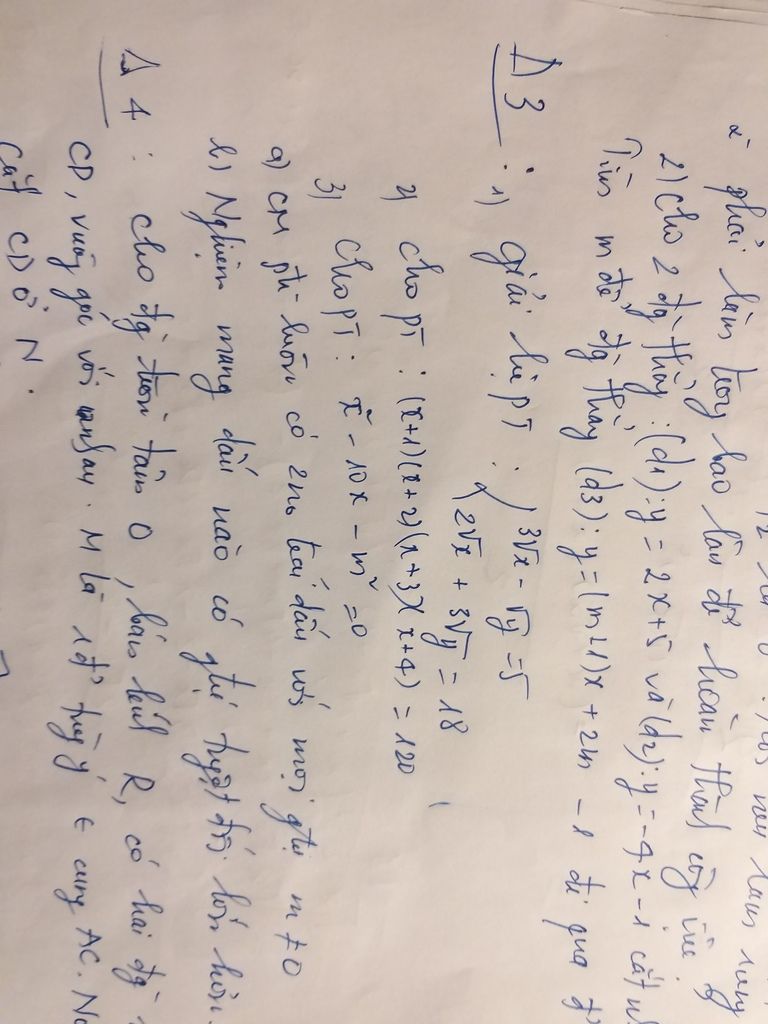 phải làm trong bao lâu để hoàn thành công việc
2) Cho 2 đg thẳng : (d1): y = 2x+5 và (d2): y = -4x-1 cắt
Tìm m để đg thẳng (d3): y = (m+1)x + 2m - 1 đi qua
Δ 3 : 1) Giải hệ pT : { 3√x - √y = 5
2√x + 3√y = 18
2) Cho pT : (x+1)(x+2)(x+3)(x+4) = 120
3) Cho pT : x² - 10x - m² = 0
a) CM pt luôn có 2no trái dấu với mọi gtrị m ≠ 0
b) Nghiệm mang dấu nào có gtrị tuyệt đối lớn hơn
Δ 4 : Cho đg tròn tâm O, bán kính R, có hai đg
CD, vuông góc với nhau. M là 1 đ' tùy ý ∈ cung AC.
Cắt CD ở N.